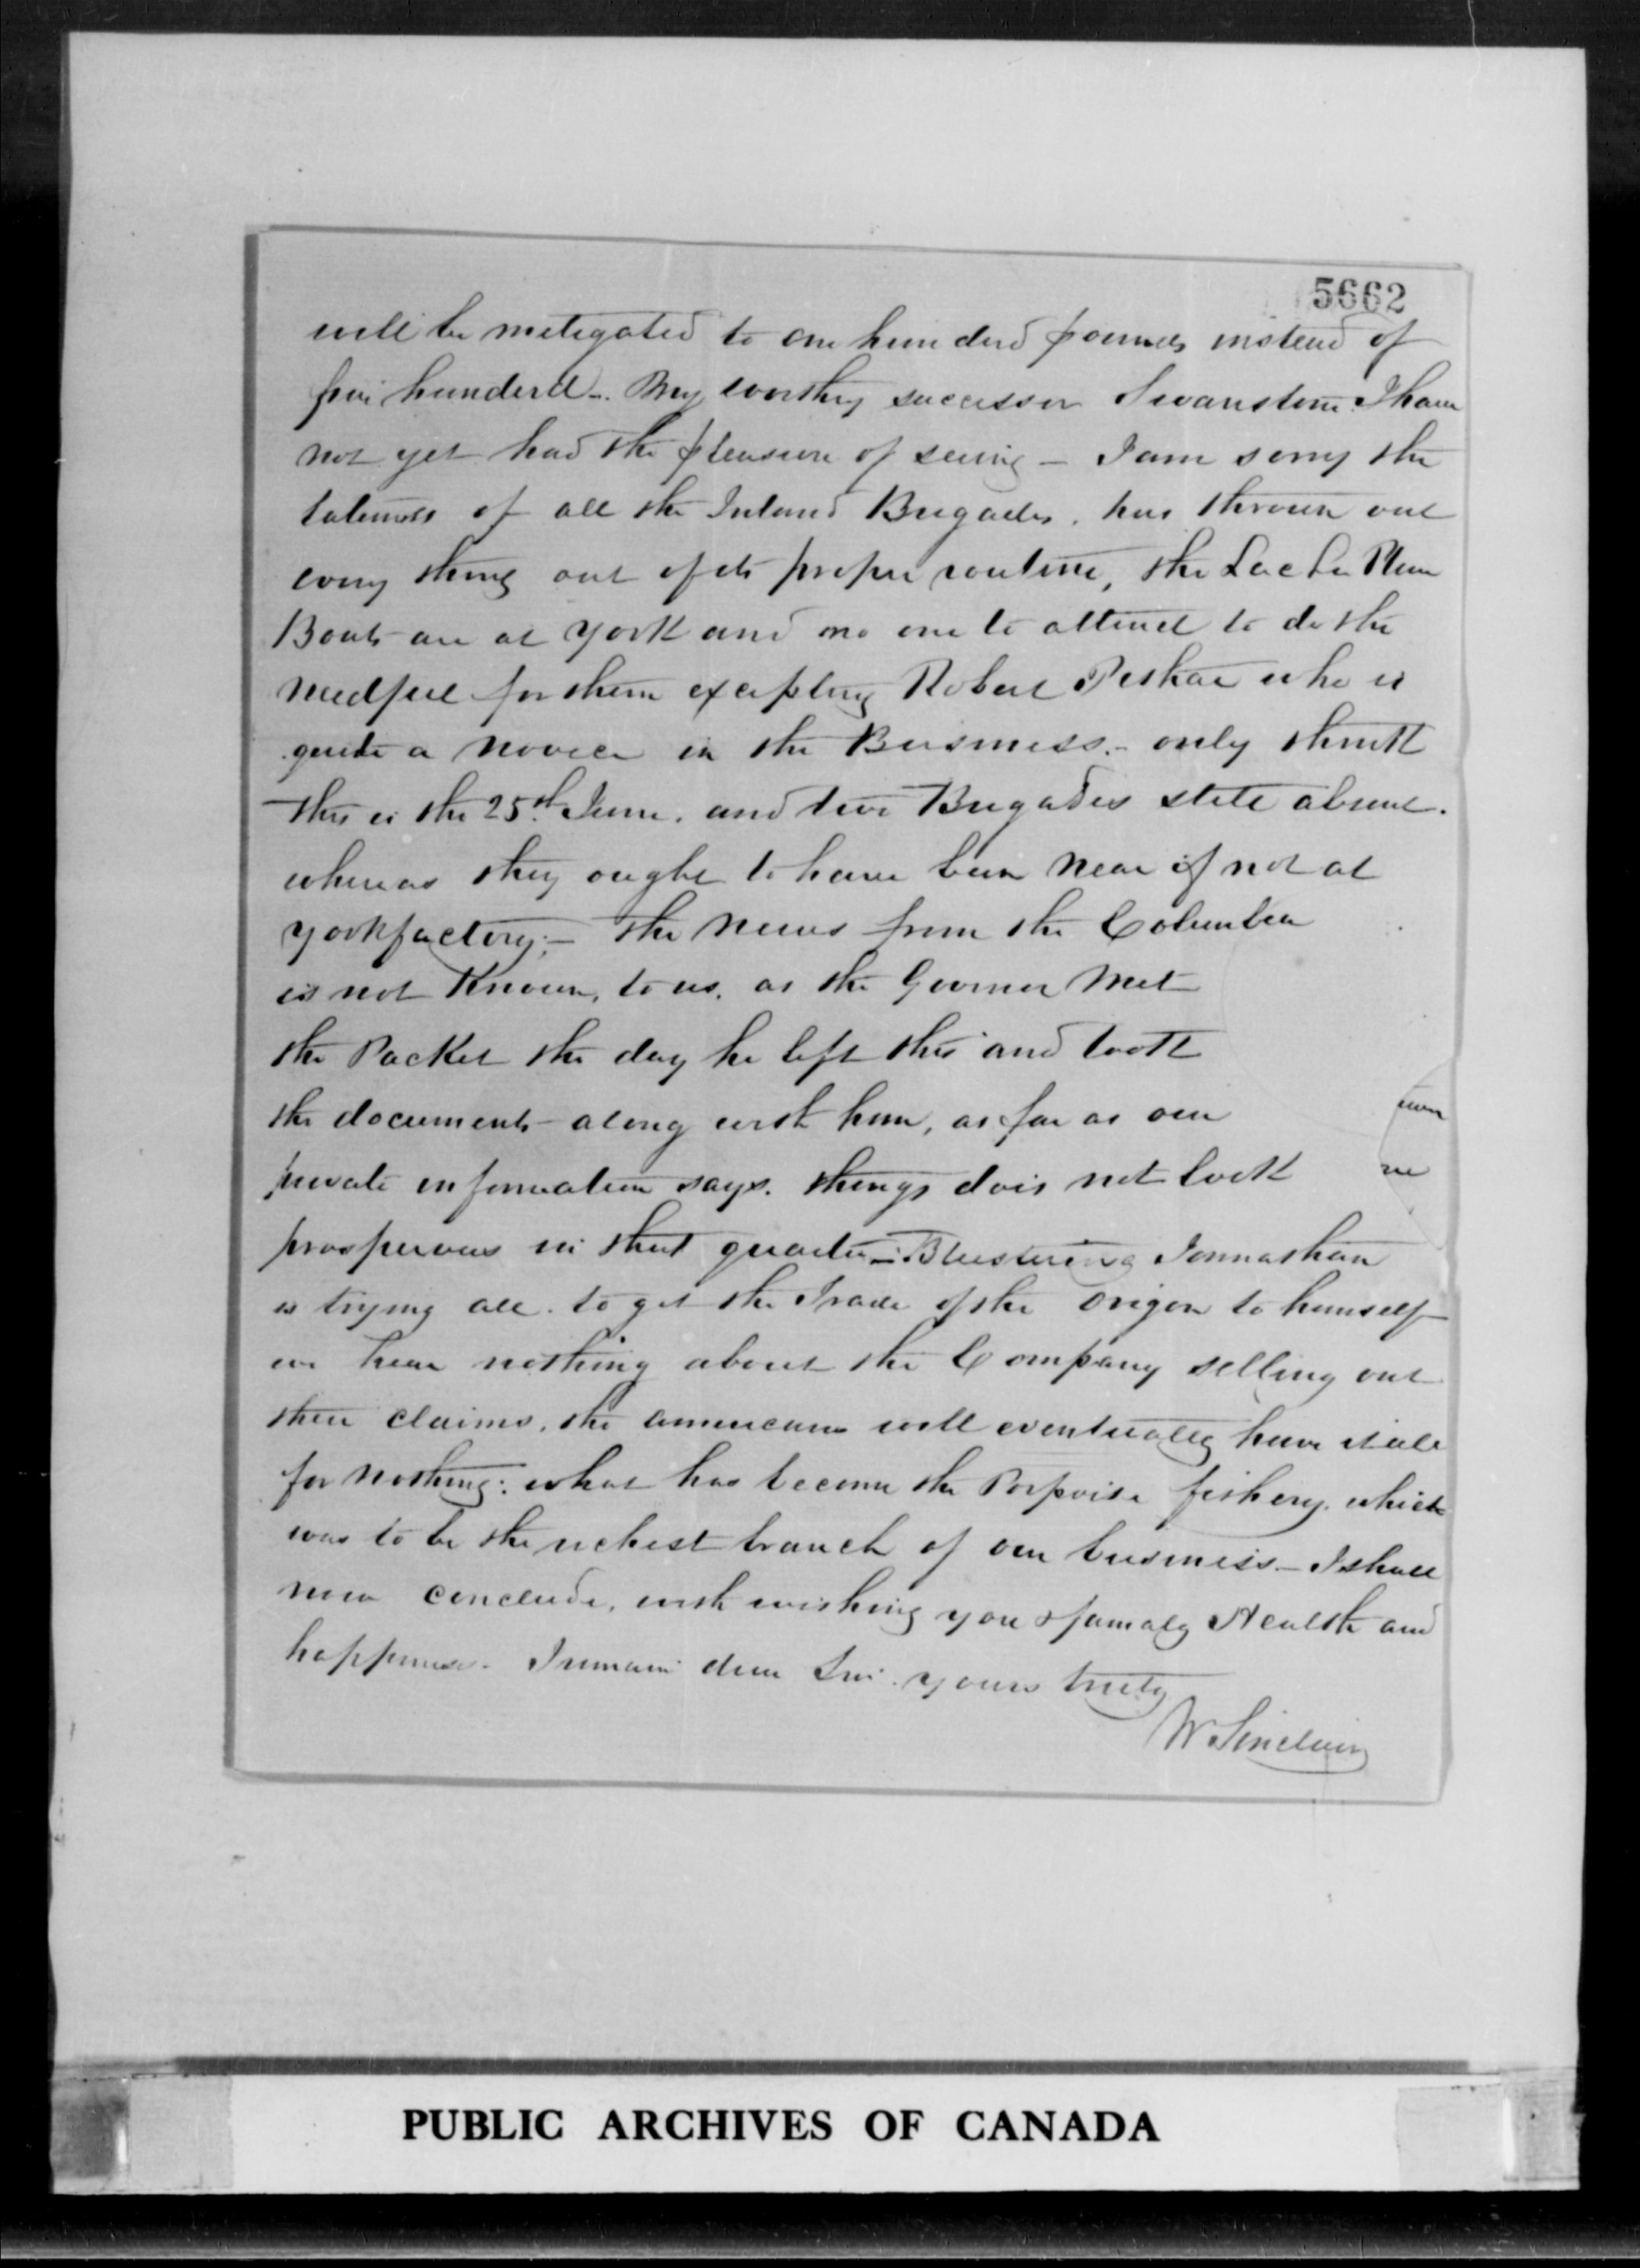 5662
will be mitigated to one hunderd pounds instead of
five hunderd -. My worthy successor Swanston I have
not yet had the pleasure of seeing - I am sorry the
lateness of all the Inland Brigades, has thrown out
every thing out of its proper routine, the Lac La Pluie
Boats are at York and no one to attend to do the
needful for them excepting Robert who is
quite a novice in the Business.- only think
this is the 25th June. and two Brigades still absent.
whereas they ought to have been near if not at
yorkfactory;- The news from the Columbia
is not Known, to us, as the Governor Met
the Packet the day he left this and took
the documents along with him, as far as our
private information says. things dois not look
prosperous in that quarter - Blustering Jonnathan
is trying all. to get the Trade of the Origon to himself
we hear nothing about the Company selling out
their claims, the americans will eventually have it all
for nothing: what has become the Porpoise fishery. which
was to be the richest branch of our business - I shall
now conclude, with wishing you & family Health and
happiness - I remain dear Sir. yours truly
W. Sinclair
PUBLIC ARCHIVES OF CANADA